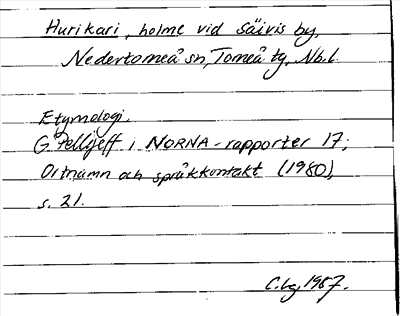 Hurikari, holme vid Säivis by,
Nedertorneå sn, Torneå tg, Nb.l.
Etymologi.
G. Pellijeff i NORNA-rapporter 17;
Ortnamn och språkkontakt (1980),
s. 21.
C.bg 1987.